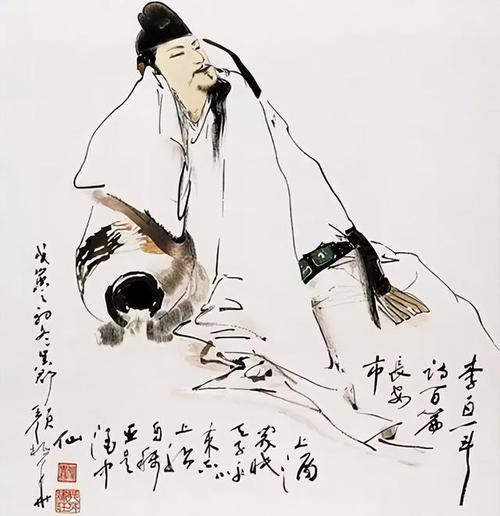 李白一斗
诗百篇
長安
市
上酒
家眠
天子呼
来不
上船
自称
臣是
酒中
仙
戊寅之初冬吴郡